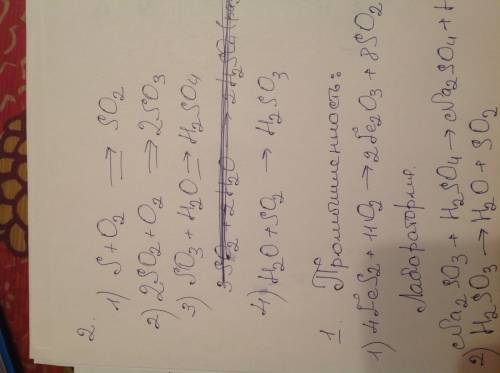 2.
1) S + O₂ ⇒ SO₂
2) 2SO₂ + O₂ ⇒ 2SO₃
3) SO₃ + H₂O ⇒ H₂SO₄
3SO₂ + 2H₂O → 2H₂SO₄
4) H₂O + SO₂ → H₂SO₃
1. Промышленность:
1) 4FeS₂ + 11O₂ → 2Fe₂O₃ + 8SO₂
Лаборатория.
Na₂SO₃ + H₂SO₄ → Na₂SO₄ + H
2) H₂SO₃ → H₂O + SO₂